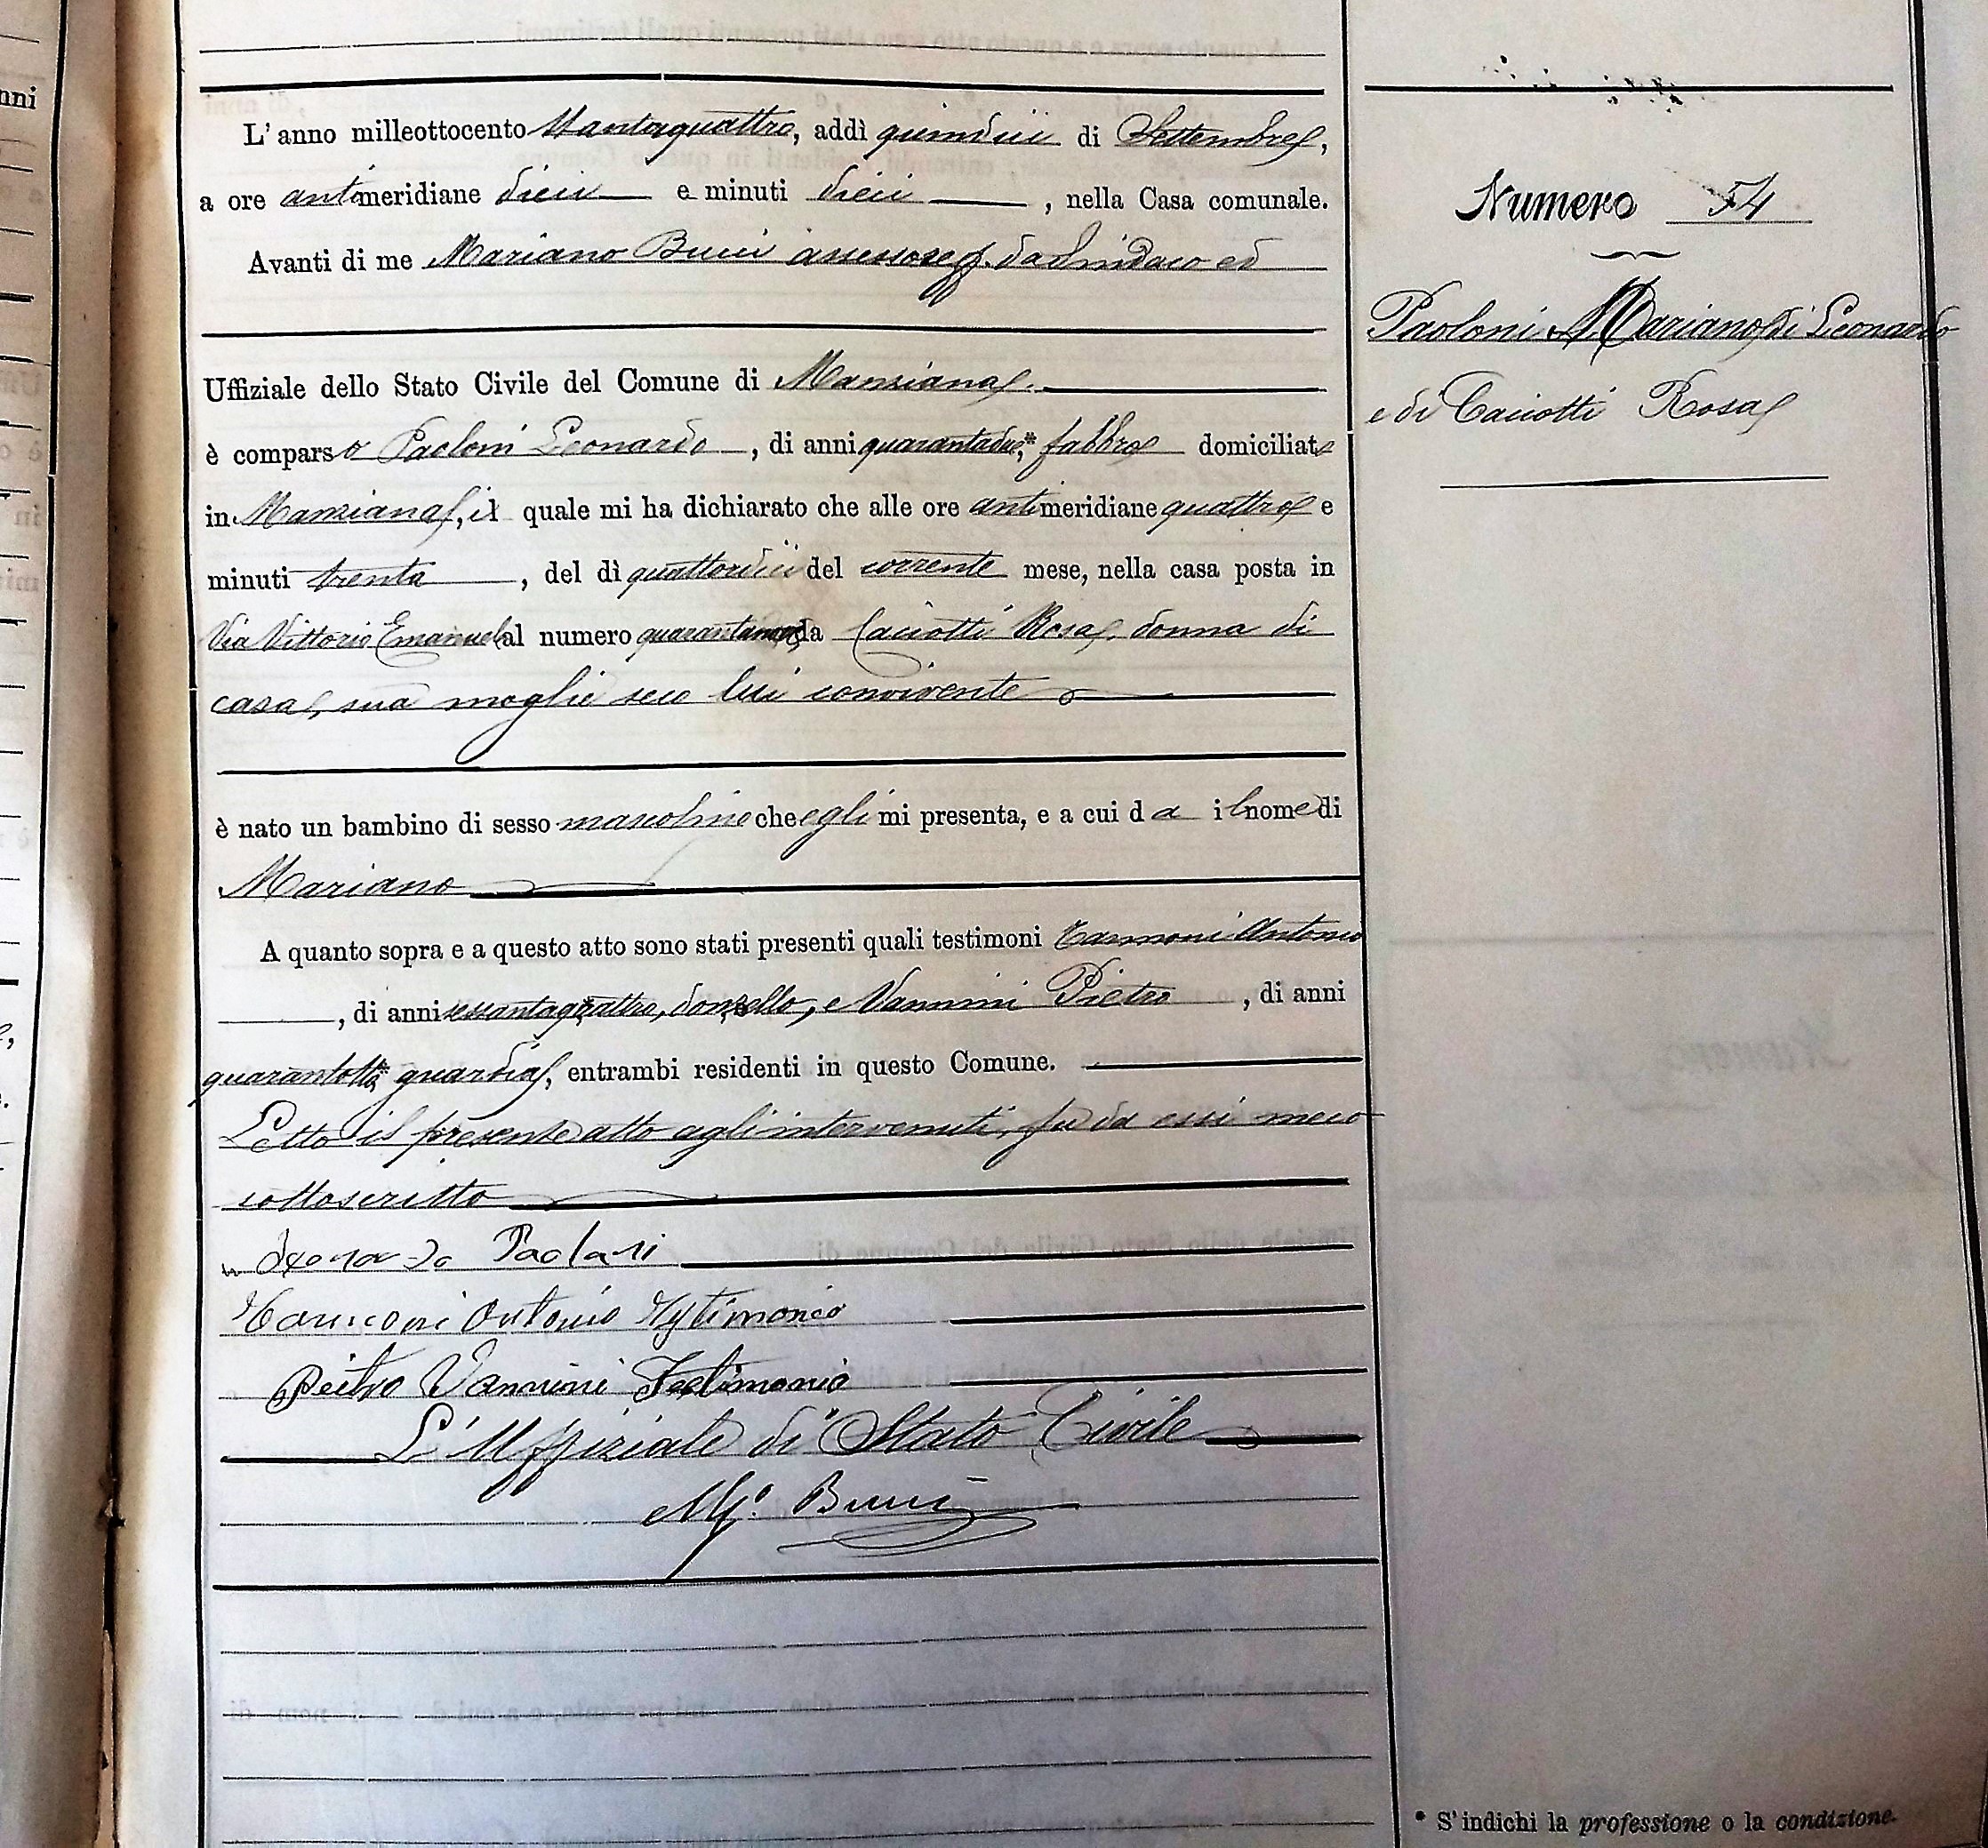 nni
L'anno milleottocento ottantaquattro, addì quindici di Settembre,
a ore antimeridiane dieci e minuti dieci, nella Casa comunale.
Avanti di me Mariano Bucci assessore ff. da Sindaco ed
Uffiziale dello Stato Civile del Comune di Manziana.
è comparso Paoloni Leonardo, di anni quarantadue,* fabbro domiciliato
in Manziana, il quale mi ha dichiarato che alle ore antimeridiane quattro e
minuti trenta, del dì quattordici del corrente mese, nella casa posta in
Via Vittorio Emanuele al numero da Caciotti Rosa, donna di
casa, sua moglie seco lui convivente
è nato un bambino di sesso mascolino che egli mi presenta, e a cui da il nome di
Mariano
A quanto sopra e a questo atto sono stati presenti quali testimoni Antonio
, di anni sessantaquattro, donzello, e Vannini Pietro, di anni
quarantotto,* guardia, entrambi residenti in questo Comune.
Letto il presente atto agli intervenuti, fu da essi meco
sottoscritto
Leonardo Paoloni
Antonio Testimonio
Peitro Vannini Testimonio
L'Uffiziale di Stato Civile
M.º Bucci
Numero 54
Paoloni Mariano di Leonardo
e di Caciotti Rosa
* S'indichi la professione o la condizione.